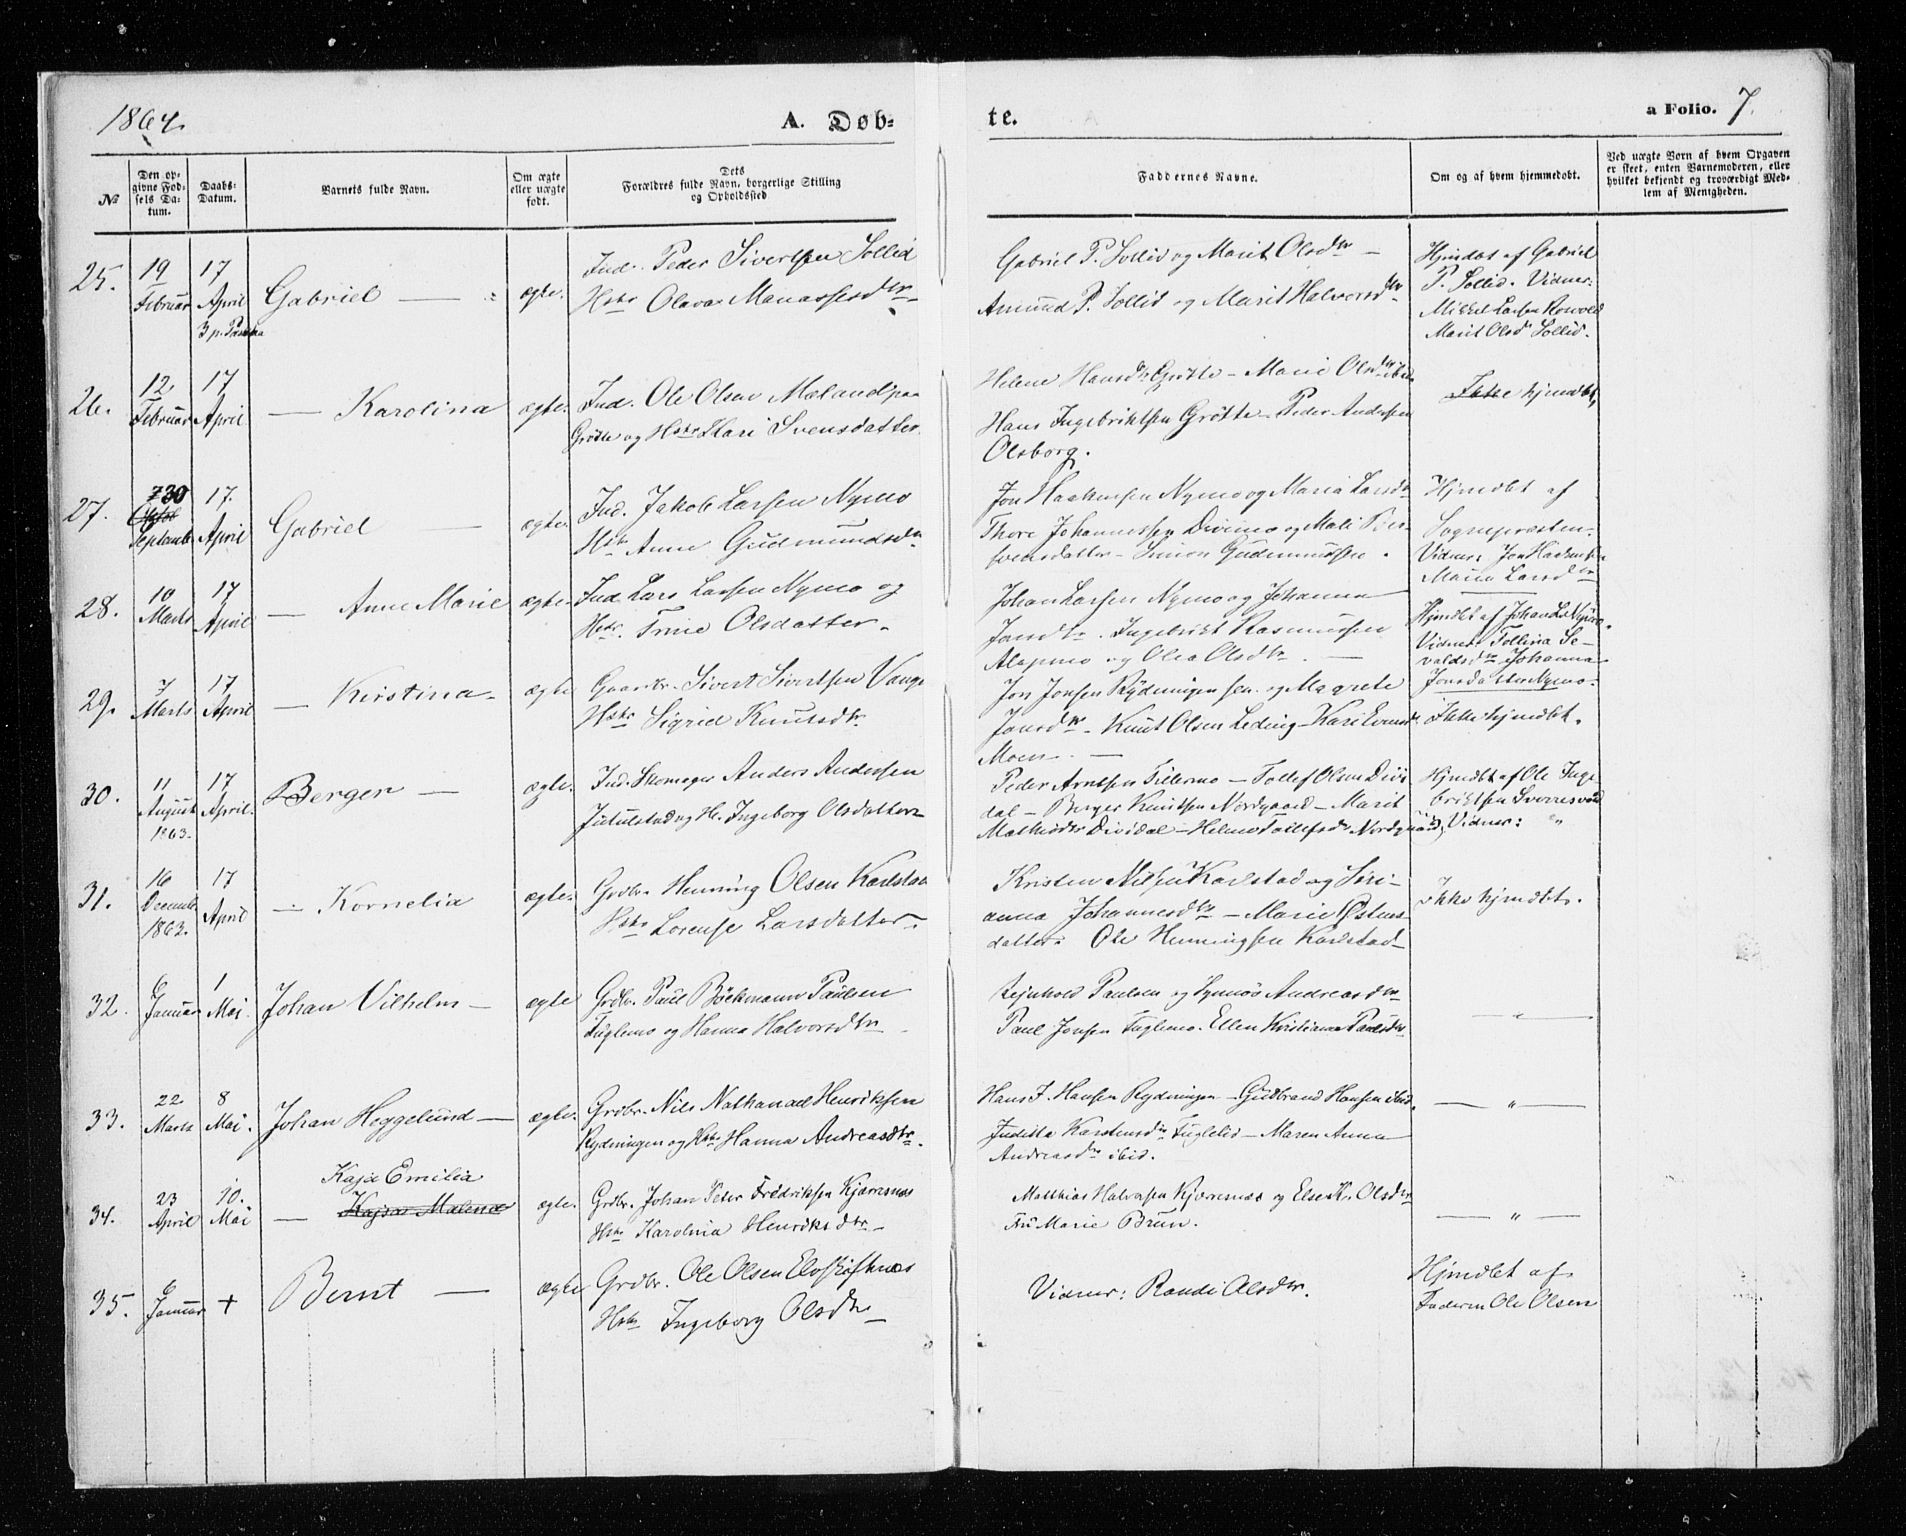 1864.
A. Døb=
te.
a Folio. 7.
№
Den op-
givne Fød-
sels Da-
tum.
Daabs-
Datum.
Barnets fulde Navn.
Om ægte
eller uægte
født.
Dets
Forældres fulde Navn, borgerlige Stilling
og Opholdssted
Faddernes Navne.
Om og af hvem hjemmedøbt.
Ved uægte Børn af hvem Opgaven
er skeet, enten Barnemoderen, eller
hvilket bekjendt og troværdigt Med-
lem af Menigheden.
25.
19
Februar
17
April
Gabriel —
ægte.
Ind. Peder Sivertsen Sollid
Hstr Olava Manassesdtr
Gabriel P. Sollid og Marit Olsdtr —
Amund P. Sollid og Marit Halvorsdtr
Hjmdbt af Gabriel
P. Sollid. Vidner:
Mikkel Larsen Rosvold
Marit Olsdtr Sollid.
26.
12
Februar
17
April
— Karolina
ægte.
Ind. Ole Olsen Mælandpaa
Grøtte og Hstr Mari Svensdatter
Helene Hansdtr Grøtte — Marie Olsdtr ibid
Hans Ingebriktsen Grøtte — Peder Andersen
Olsborg.
Ikke hjmdbt,
27.
30
Septemb.
17.
April
Gabriel —
ægte.
Ind. Jakob Larsen Nymo
Hstr Anne Gudmundsdtr
Jon Haakensen Nymo og Maria Larsdtr
Thore Johannessen Divimo og Mali Tor-
steinsdatter — Simon Gudmundsen.
Hjmdbt af
Sognepresten.
Vidner: Jon Haakensen
Maria Larsdtr
28.
10
Marts
17
April
— Anne Marie
ægte.
Ind Lars Larsen Nymo og
Hstr. Trine Olsdatter.
Johan Larsen Nymo og Johanna
Jonsdtr. Ingebrikt Rasmussen
Alapmo og Olea Olsdtr. —
Hjmdbt af Johan L. Nymo.
Vidner Tollina Se-
valdsdtr Johanna
Jonsdatter Nymo.
29.
7
Marts
17
April
— Kristina.
ægte
Gaardbr. Sivert Sivertsen Vange
Hstr Sigrid Knutsdtr.
Jon Jonsen Rydningen sen. og Magrete
Jonsdtr — Knut Olsen Leding — Kari Evensd.
Moen. —
Ikke hjmdbt.
30.
11
August
1863.
17
April.
Berger —
ægte.
Ind. Skomager Anders Andersen
Jutulstad og H. Ingeborg Olsdatter
Peder Arntsen Tillermo — Tollef Olsen Divi
dal — Berger Knutsen Nordgaard — Marit
Mathisdtr Dividal — Helmo Tollefsdtr Nordgaard
Hjmdbt af Ole Inge
briktsen Sverresvold
Vidner: "
31.
16
Decemb.
1863.
17
April
— Kornelia
ægte.
Grdbr. Henning Olsen Karlstad
Hstr Lorense Larsdatter.
Kristen Nilsen Karlstad og Siri-
anna Johannesdtr — Marie Østens-
datter Ole Henningsen Karlstad
Ikke hjmdbt.
32.
6
Januar
1
Mai.
Johan Vilhelm —
ægte
Grdbr. Paul Böckmann Paulsen
Fuglemo og Hanna Halvorsdtr
Rejnhold Paulsen og Synnöv Andreasdtr
Paul Jonsen Fuglemo. Ellen Kristianna Paulsdtr
— " —
33.
22
Marts
8
Mai.
Johan Heggelund —
ægte.
Grdbr. Nils Nathanael Henriksen
Rydningen og Hstr Hanna Andreasdtr.
Hans J. Hansen Rydningen — Gudbrand Hansen ibid.
Juditta Karstensdtr Fuglelid — Maren Anna
Andreasdtr ibid.
— " —
34.
23
April
10.
Mai
Kaja Emilia
— Kajsa Malena
ægte.
Grdbr. Johan Peter Fredriksen Kjærresnes
Hstr Karolina Henriksdtr.
Matthias Halvorsen Kjærresnes og Else Kr. Olsdtr
Fru Marie Brun.
— " —
35.
6
Januar
+
Bernt —
ægte
Grdbr. Ole Olsen Elvskiftnæs
Hstr Ingeborg Olsdtr
Vidner: Randi Olsdtr.
Hjmdbt af
Faderen Ole Olsen